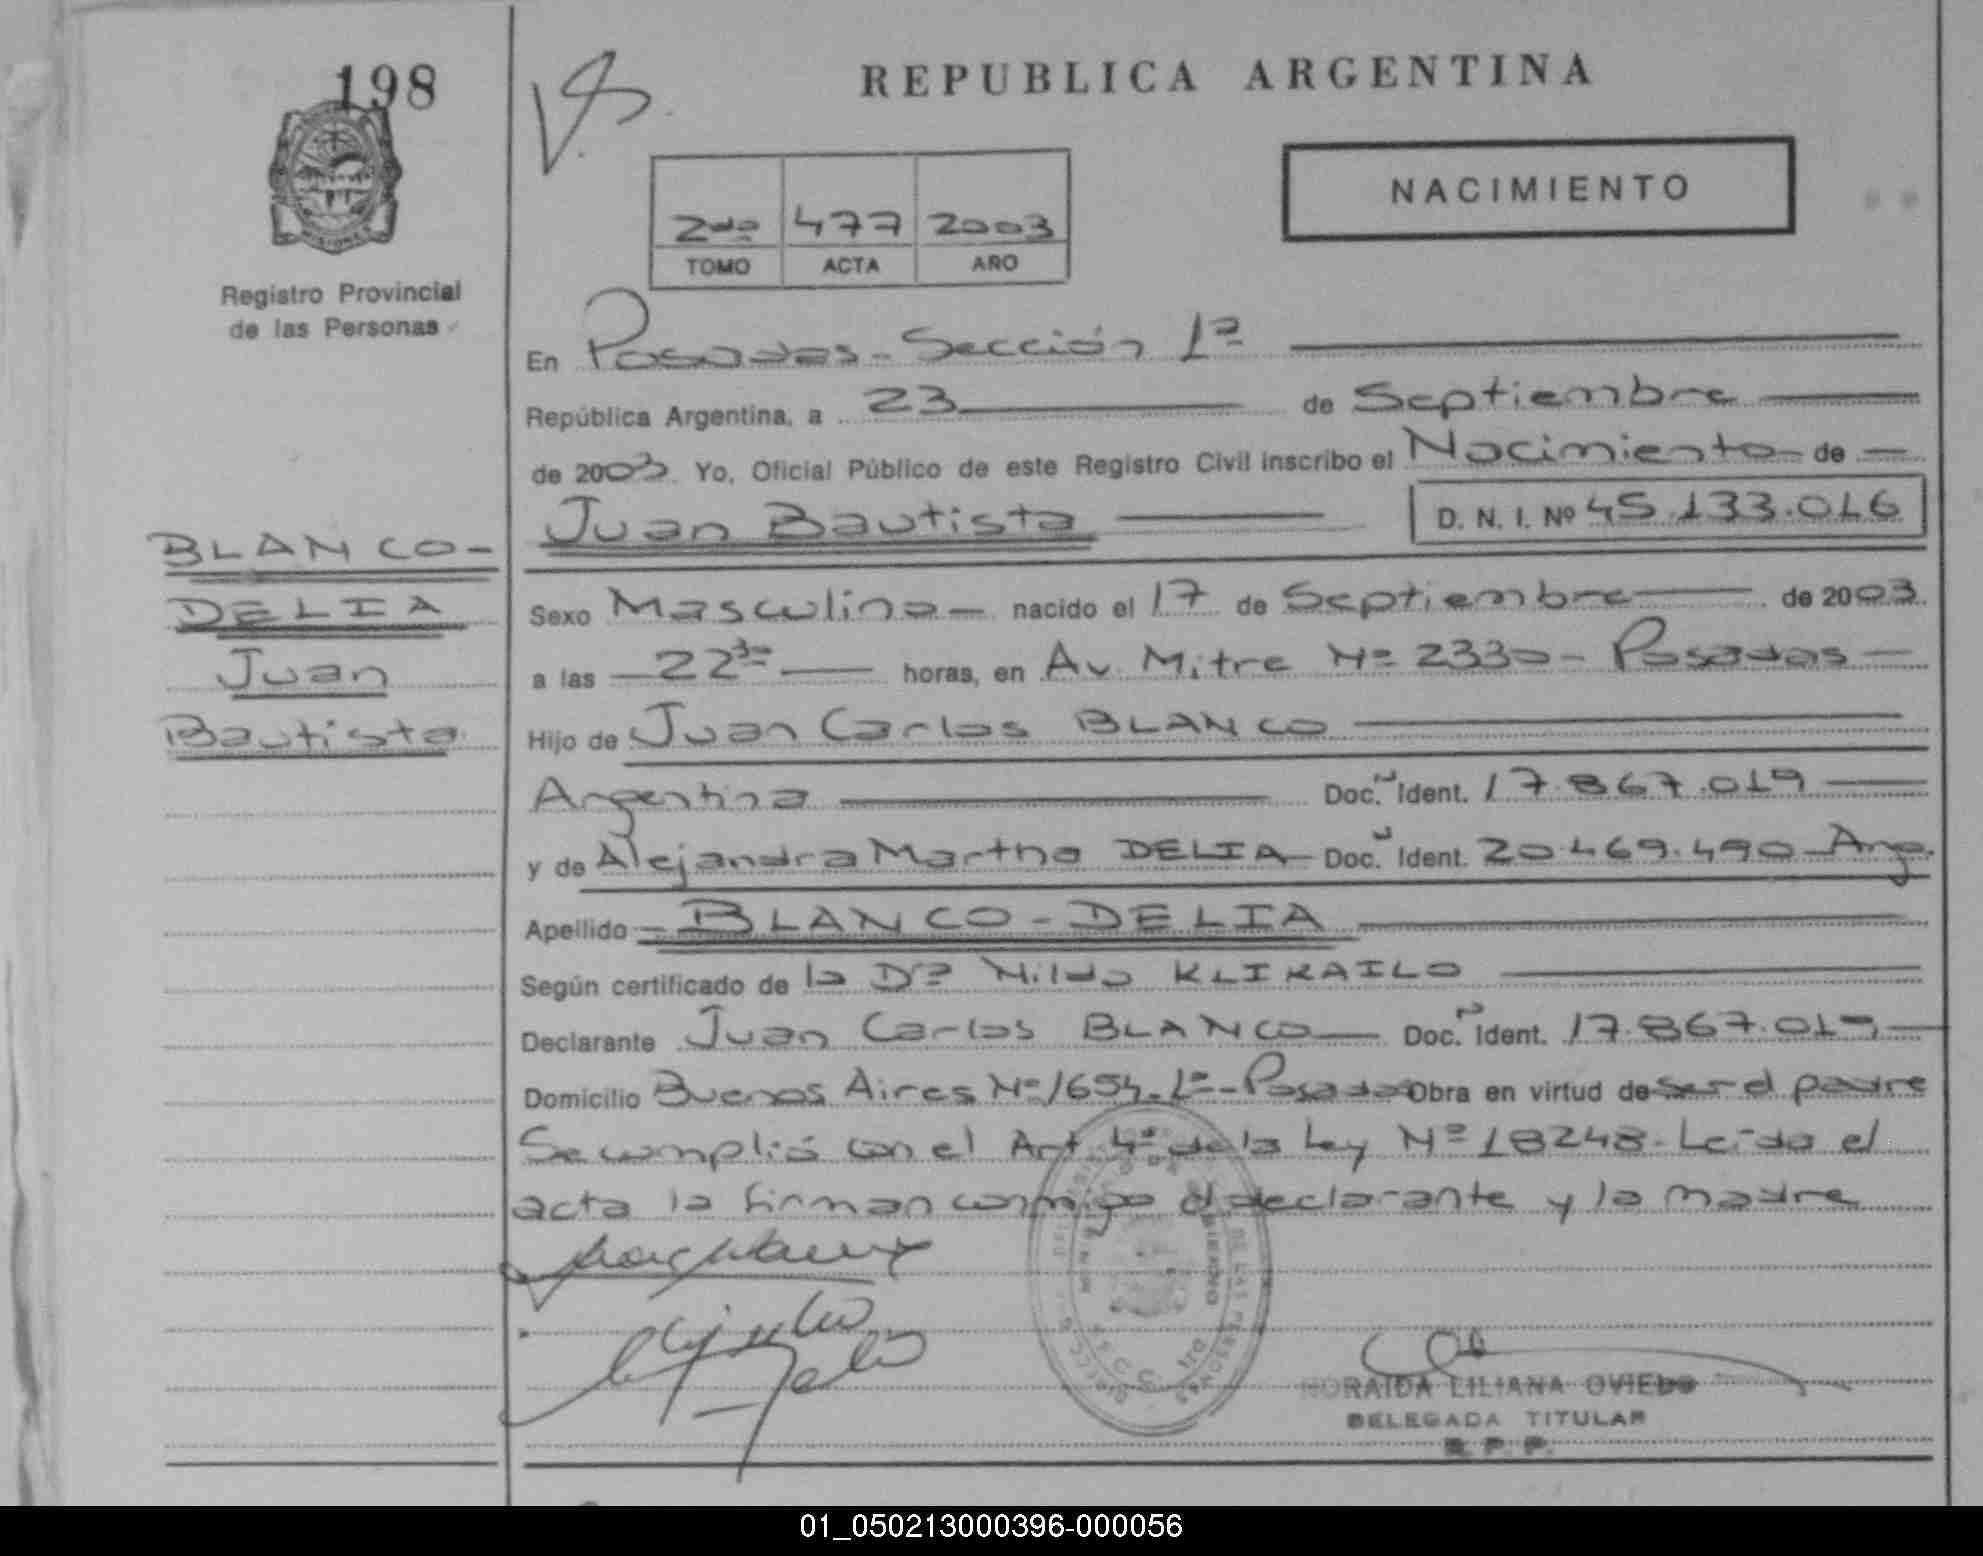 198
REPUBLICA ARGENTINA
NACIMIENTO
2do 477 2003
TOMO ACTA AÑO
MISIONES
Registro Provincial
de las Personas
En Posadas - Sección 1ª
República Argentina, a 23 de Septiembre
de 2003. Yo, Oficial Público de este Registro Civil inscribo el Nacimiento de
Juan Bautista D. N. I. Nº 45.133.016
BLANCO-
DELIA
Juan
Bautista
Sexo Masculino nacido el 17 de Septiembre de 2003.
a las 22³⁰ horas, en Av. Mitre Nº 2330 - Posadas
Hijo de Juan Carlos BLANCO
Argentina Doc. Ident. 17.867.019
y de Alejandra Martha DELIA Doc. Ident. 20.469.490 Arg.
Apellido BLANCO-DELIA
Según certificado de la Drª Nilda KLIKAILO
Declarante Juan Carlos BLANCO Doc. Ident. 17.867.019
Domicilio Buenos Aires Nº 1654. 1º - Posadas Obra en virtud de ser el padre
Se cumplió con el Art 4º de la Ley Nº 18248. Leída el
acta la firman conmigo el declarante y la madre
NORAIDA LILIANA OVIEDO
DELEGADA TITULAR
R. P. P.
01_050213000396-000056